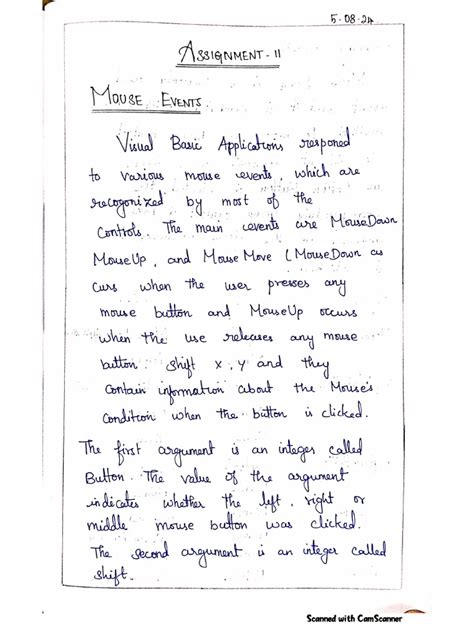 5-08-24
ASSIGNMENT-II
MOUSE EVENTS.
Visual Basic Applications responed
to various mouse events, which are
recogonized by most of the
Controls. The main events are MouseDown
MouseUp, and MouseMove (MouseDown as
curs when the user presses any
mouse button and MouseUp occurs
when the use releases any mouse
button. Shift x, y and they
Contain information about the Mouse's
Condition when the button is clicked.
The first argument is an integer called
Button. The value of the argument
indicates whether the left, right or
middle mouse button was clicked.
The second argument is an integer called
shift.
Scanned with CamScanner